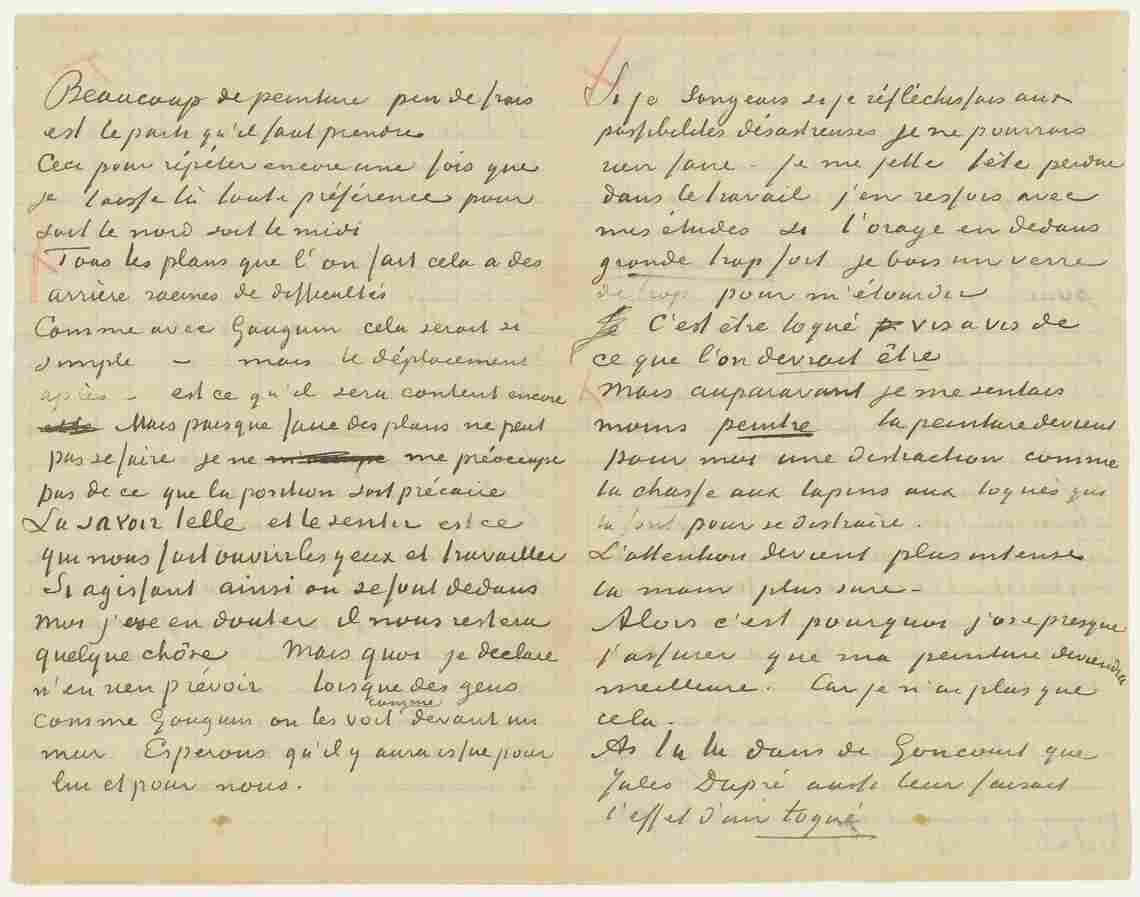 Beaucoup de peinture peu de frais
est le parti qu'il faut prendre
Ceci pour répéter encore une fois que
je laisse là toute préférence pour
soit le nord soit le midi
Tous les plans que l'on fait cela a des
arrière racines de difficultés
Comme avec Gauguin cela serait si
simple – mais le déplacement
après – est ce qu'il sera content encore
Mais puisque faire des plans ne peut
pas se faire je ne me préoccupe
pas de ce que la position soit précaire
La savoir telle et le sentir est ce
qui nous fait ouvrir les yeux et travailler
Si agissant ainsi on se fout dedans
moi j'ose en douter il nous restera
quelque chôse Mais quoi je déclare
n'en rien prévoir lorsque des gens
comme Gauguin on les voit comme devant un
mur. Esperons qu'il y aura issue pour
lui et pour nous.
Si je songeais si je réfléchissais aux
possibilités désastreuses je ne pourrais
rien faire – je me jette tête perdue
dans le travail j'en ressors avec
mes études si l'orage en dedans
gronde trop fort je bois un verre
de trop pour m'étourdir
C'est être toqué vis a vis de
ce que l'on devrait être
Mais auparavant je me sentais
moins peintre la peinture devient
pour moi une distraction comme
la chasse aux lapins aux toqués qui
la font pour se distraire.
L'attention devient plus intense
la main plus sure –
Alors c'est pourquoi j'ose presque
t'assurer que ma peinture deviendra
meilleure. Car je n'ai plus que
cela.
As tu lu dans de Goncourt que
Jules Dupré aussi leur faisait
l'effet d'un toqué